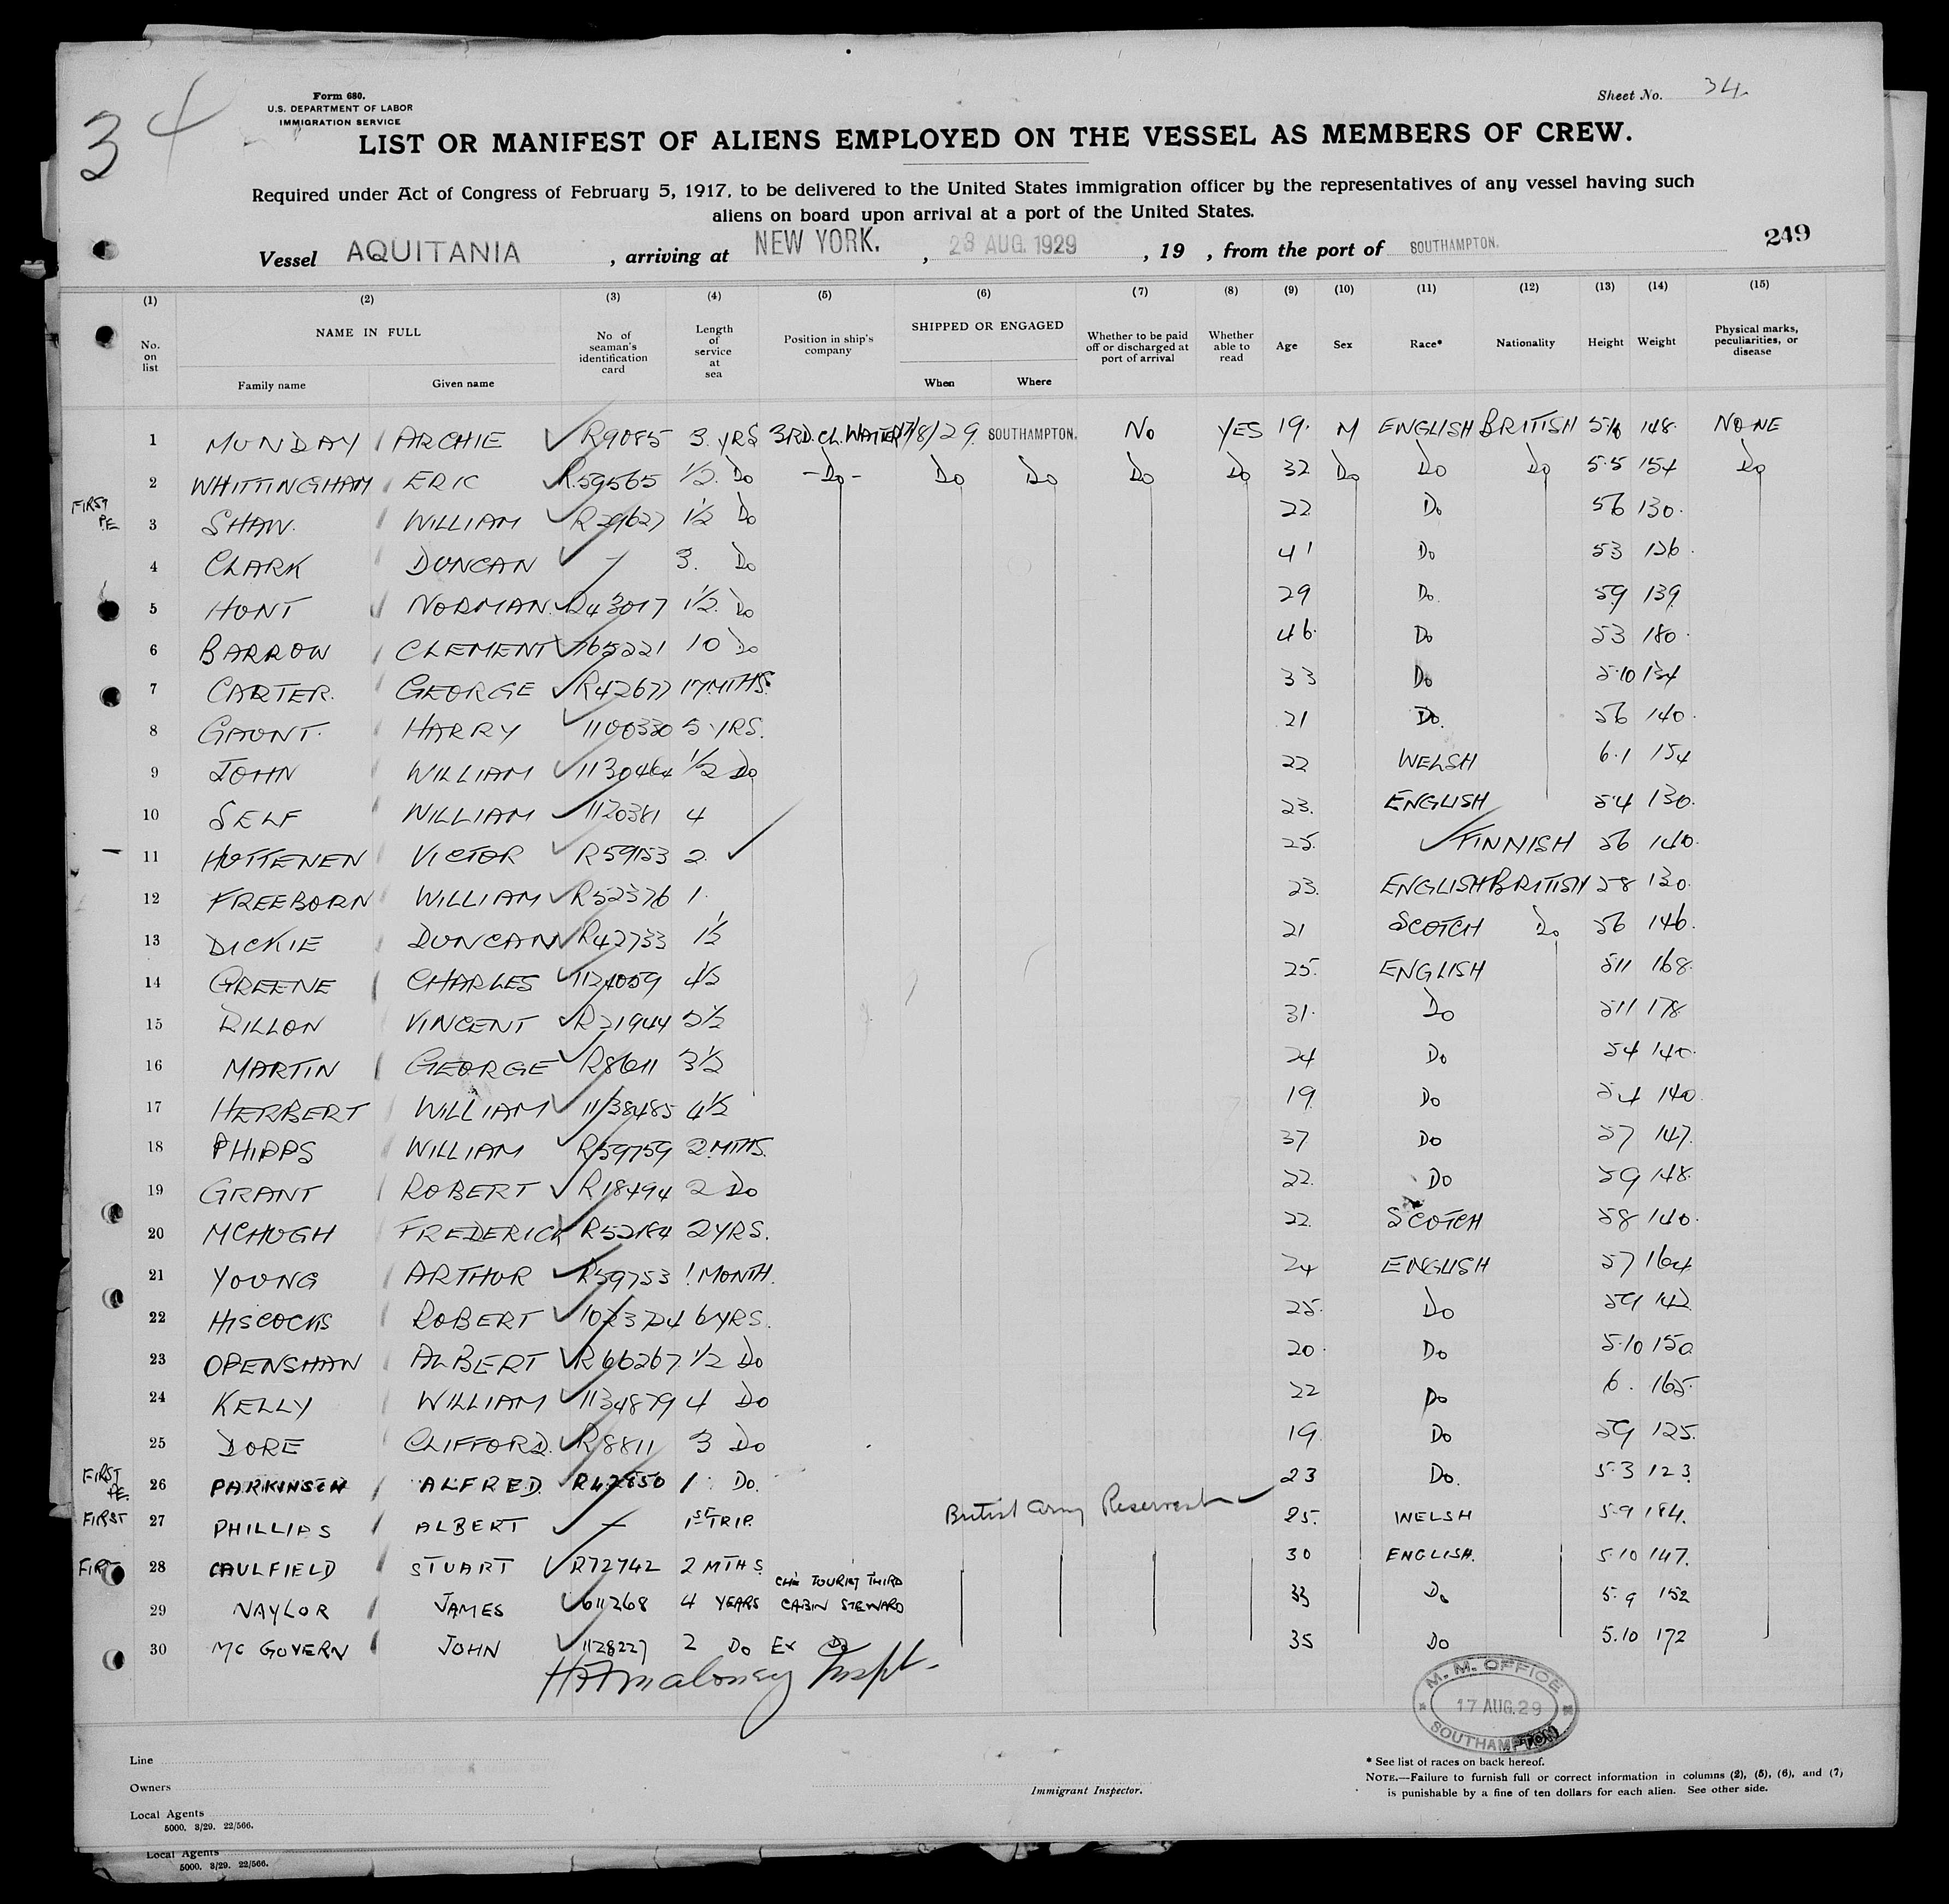 34
Form 680.
U.S. DEPARTMENT OF LABOR
IMMIGRATION SERVICE
Sheet No. 34
LIST OR MANIFEST OF ALIENS EMPLOYED ON THE VESSEL AS MEMBERS OF CREW.
Required under Act of Congress of February 5, 1917, to be delivered to the United States immigration officer by the representatives of any vessel having such
aliens on board upon arrival at a port of the United States.
Vessel AQUITANIA , arriving at NEW YORK. , 23 AUG. 1929 , 19 , from the port of SOUTHAMPTON. 249
(1) (2) (3) (4) (5) (6) (7) (8) (9) (10) (11) (12) (13) (14) (15)
No. on list NAME IN FULL Family name Given name No. of seaman's identification card Length of service at sea Position in ship's company SHIPPED OR ENGAGED When Where Whether to be paid off or discharged at port of arrival Whether able to read Age Sex Race* Nationality Height Weight Physical marks, peculiarities, or disease
1 MUNDAY ARCHIE R9085 3 YRS 3RD. CL. WAITER 17/8/29 SOUTHAMPTON. No YES 19. M ENGLISH BRITISH 5.6 148. NONE
2 WHITTINGHAM ERIC R.59565 1/2 Do -Do- Do Do Do Do 32 Do Do Do 5.5 154 Do
FIRST P.E. 3 SHAW. WILLIAM R29627 1½ Do 22 Do 56 130.
4 CLARK DUNCAN - 3. Do 41 Do 53 126.
5 HUNT NORMAN. R43017 1½ Do 29 Do. 59 139
6 BARROW CLEMENT 765221 10 Do 46. Do 53 180.
7 CARTER. GEORGE R42677 17 MTHS. 33 Do 5.10 134
8 GAUNT. HARRY 1100330 5 YRS. 21 Do. 56 140.
9 JOHN WILLIAM 1130464 1/2 Do 22 WELSH 6.1 154
10 SELF WILLIAM 1120381 4 23. ENGLISH 54 130.
11 HUTTENEN VICTOR R59153 2. 25. FINNISH 56 140.
12 FREEBORN WILLIAM R52376 1. 23. ENGLISH BRITISH 58 130.
13 DICKIE DUNCAN R42733 1½ 21 SCOTCH Do 56 146.
14 GREENE CHARLES 1124059 4½ 25. ENGLISH 511 168.
15 DILLON VINCENT R21944 5½ 31. Do 511 178
16 MARTIN GEORGE R8611 3½ 24 Do 54 140.
17 HERBERT WILLIAM 1138485 4½ 19 Do 54 140.
18 PHIPPS WILLIAM R59759 2 MTHS. 37 Do 57 147.
19 GRANT ROBERT R18494 2 Do 22. Do 59 148.
20 MCHUGH FREDERICK R52184 2 YRS. 22 SCOTCH 58 140.
21 YOUNG ARTHUR R59753 1 MONTH. 24 ENGLISH 57 164
22 HISCOCKS ROBERT 6 YRS. 25. Do 59 142
23 OPENSHAW ALBERT R66267 1/2 Do 20. Do 5.10 150
24 KELLY WILLIAM 1134879 4 Do 22 Do 6. 165.
25 DORE CLIFFORD. R8811 3 Do 19. Do 59 125.
FIRST P.E. 26 PARKINSON ALFRED. R42850 1. Do. 23 Do. 5.3 123
FIRST 27 PHILLIPS ALBERT - 1ST TRIP. British Army Reservest 25. WELSH 5.9 184.
FIRST 28 CAULFIELD STUART R72742 2 MTHS. 30 ENGLISH. 5.10 147.
29 NAYLOR JAMES 611268 4 YEARS TOURIST THIRD CABIN STEWARD 33 Do 5.9 152
30 MC GOVERN JOHN 1128227 2 Do Ex Do 35 Do 5.10 172
Maloney Inspt.
M. M. OFFICE
17 AUG. 29
SOUTHAMPTON
Line
Owners
Local Agents
5000. 3/29. 22/566.
Immigrant Inspector.
* See list of races on back hereof.
NOTE.—Failure to furnish full or correct information in columns (2), (5), (6), and (7)
is punishable by a fine of ten dollars for each alien. See other side.
Local Agents
5000. 3/29. 22/566.